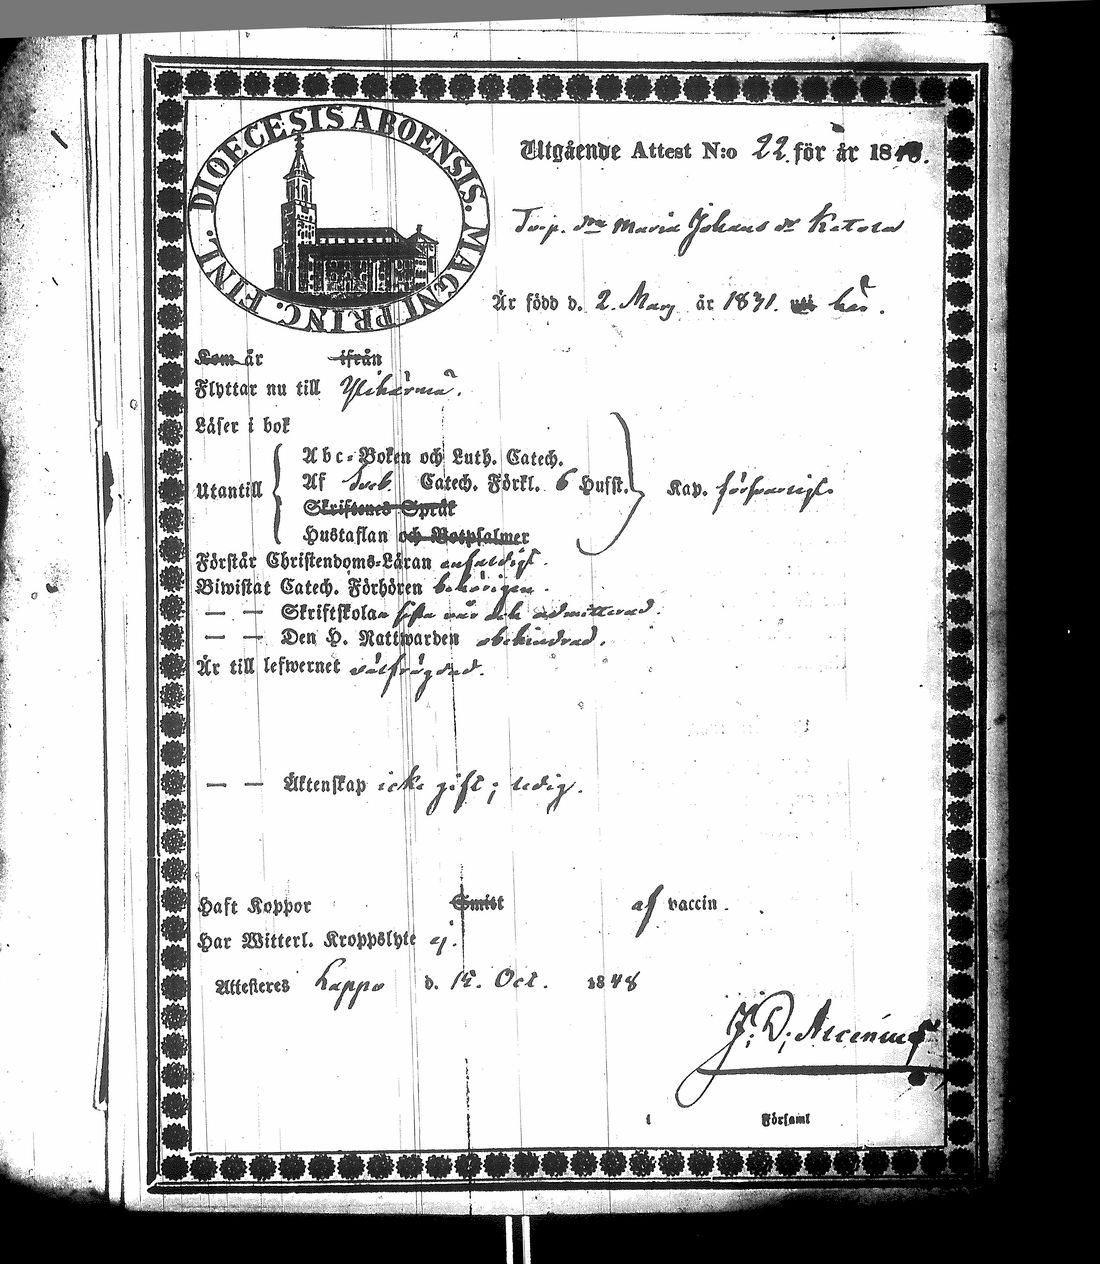 DIOECESIS ABOENSIS. MAGNI PRINC. FINL.
Utgående Attest N:o 22. för år 1848.
Torp. dr Maria Johans dr Ketola
Är född d. 2. Mars år 1831. här.
Kom år ifrån
Flyttar nu till Ylihärmä.
Läser i bok
Utantill
Abc-Boken och Luth. Catech.
Af Sveb. Catech. Förkl. 6 Hufst.
Kap. försvarligt
Skriftenes Språk
Hustaflan och Botpsalmer
Förstår Christendoms-Läran enfaldigt.
Biwistat Catech. Förhören behörigen.
— — Skriftskolan admitterad.
— — Den H. Nattwarden obehindrad.
Är till lefwernet välfrägdad.
— — Äktenskap icke gift; ledig.
Haft Koppor Smitt af vaccin.
Har Witterl. Kroppslyte ej.
Attesteres Lappo d. 15. Oct. 1848
J. D. Alcenius
i Församl